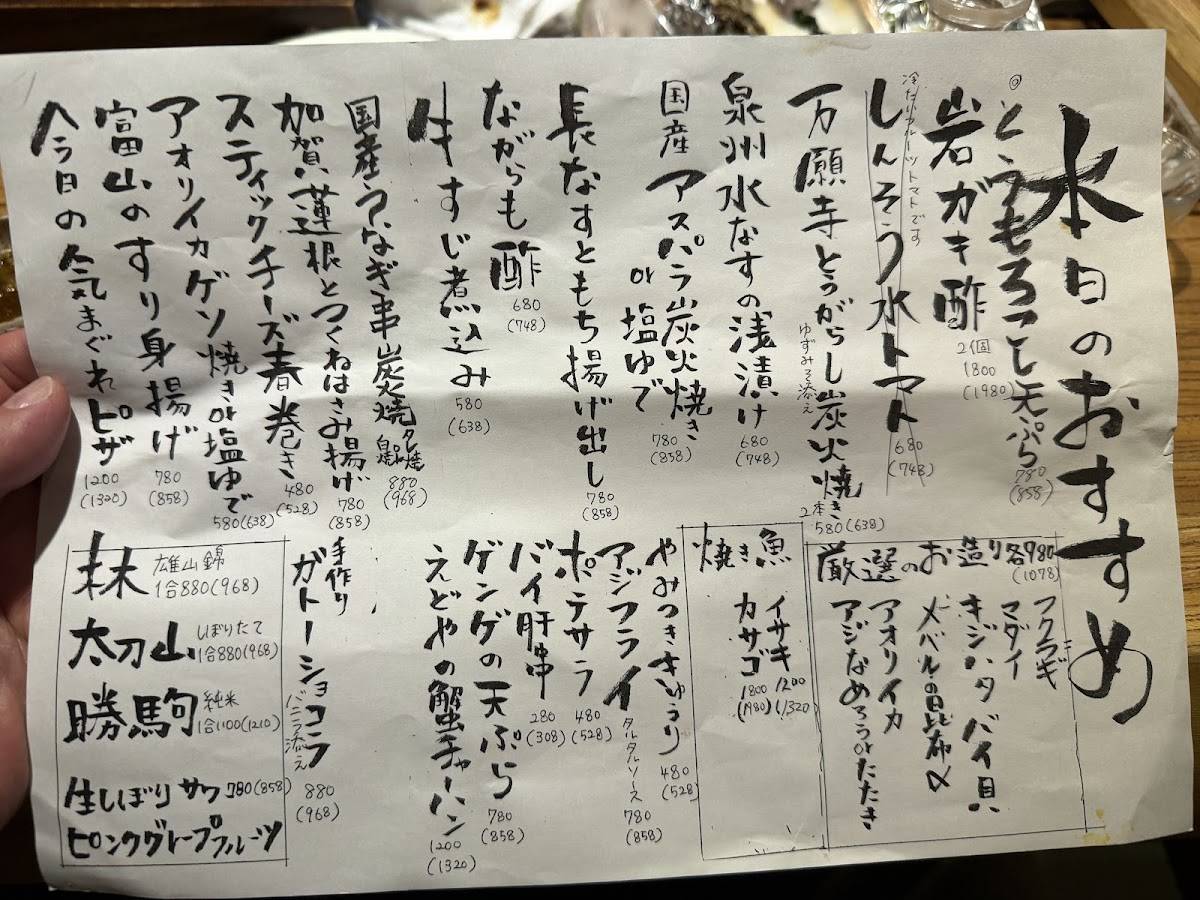 本日のおすすめ
◎とうもろこし天ぷら 780 (858)
岩ガキ酢 2個 1800 (1980)
冷たいフルーツトマトです
しんそう水トマト 680 (748)
万願寺とうがらし炭火焼き 2本 580(638)
ゆずみそ添え
泉州水なすの浅漬け 680 (748)
国産アスパラ炭火焼き
or塩ゆで 780 (858)
長なすともち揚げ出し 780 (858)
ながらも酢 680 (748)
牛すじ煮込み 580 (638)
国産うなぎ串炭焼 タレ焼 or 白焼 880 (968)
加賀蓮根とつくねはさみ揚げ 780 (858)
スティックチーズ春巻き 480 (528)
アオリイカゲソ焼きor塩ゆで 580(638)
富山のすり身揚げ 780 (858)
今日の気まぐれピザ 1200 (1320)
厳選のお造り各980 (1078)
フクラギ
マダイ
キジハタ バイ貝
メバルの昆布〆
アオリイカ
アジなめろうorたたき
焼き魚
イサキ 1200 (1320)
カサゴ 1800 (1980)
やみつききゅうり 480 (528)
アジフライ タルタルソース 780 (858)
ポテサラ 480 (528)
バイ肝串 280 (308)
ゲンゲの天ぷら 780 (858)
えどやの蟹チャーハン 1200 (1320)
手作り
ガトーショコラ
バニラ添え 880 (968)
林 雄山錦 1合880(968)
太刀山 しぼりたて 1合880(968)
勝駒 純米 1合1100(1210)
生しぼりサワー 780(858)
ピンクグレープフルーツ